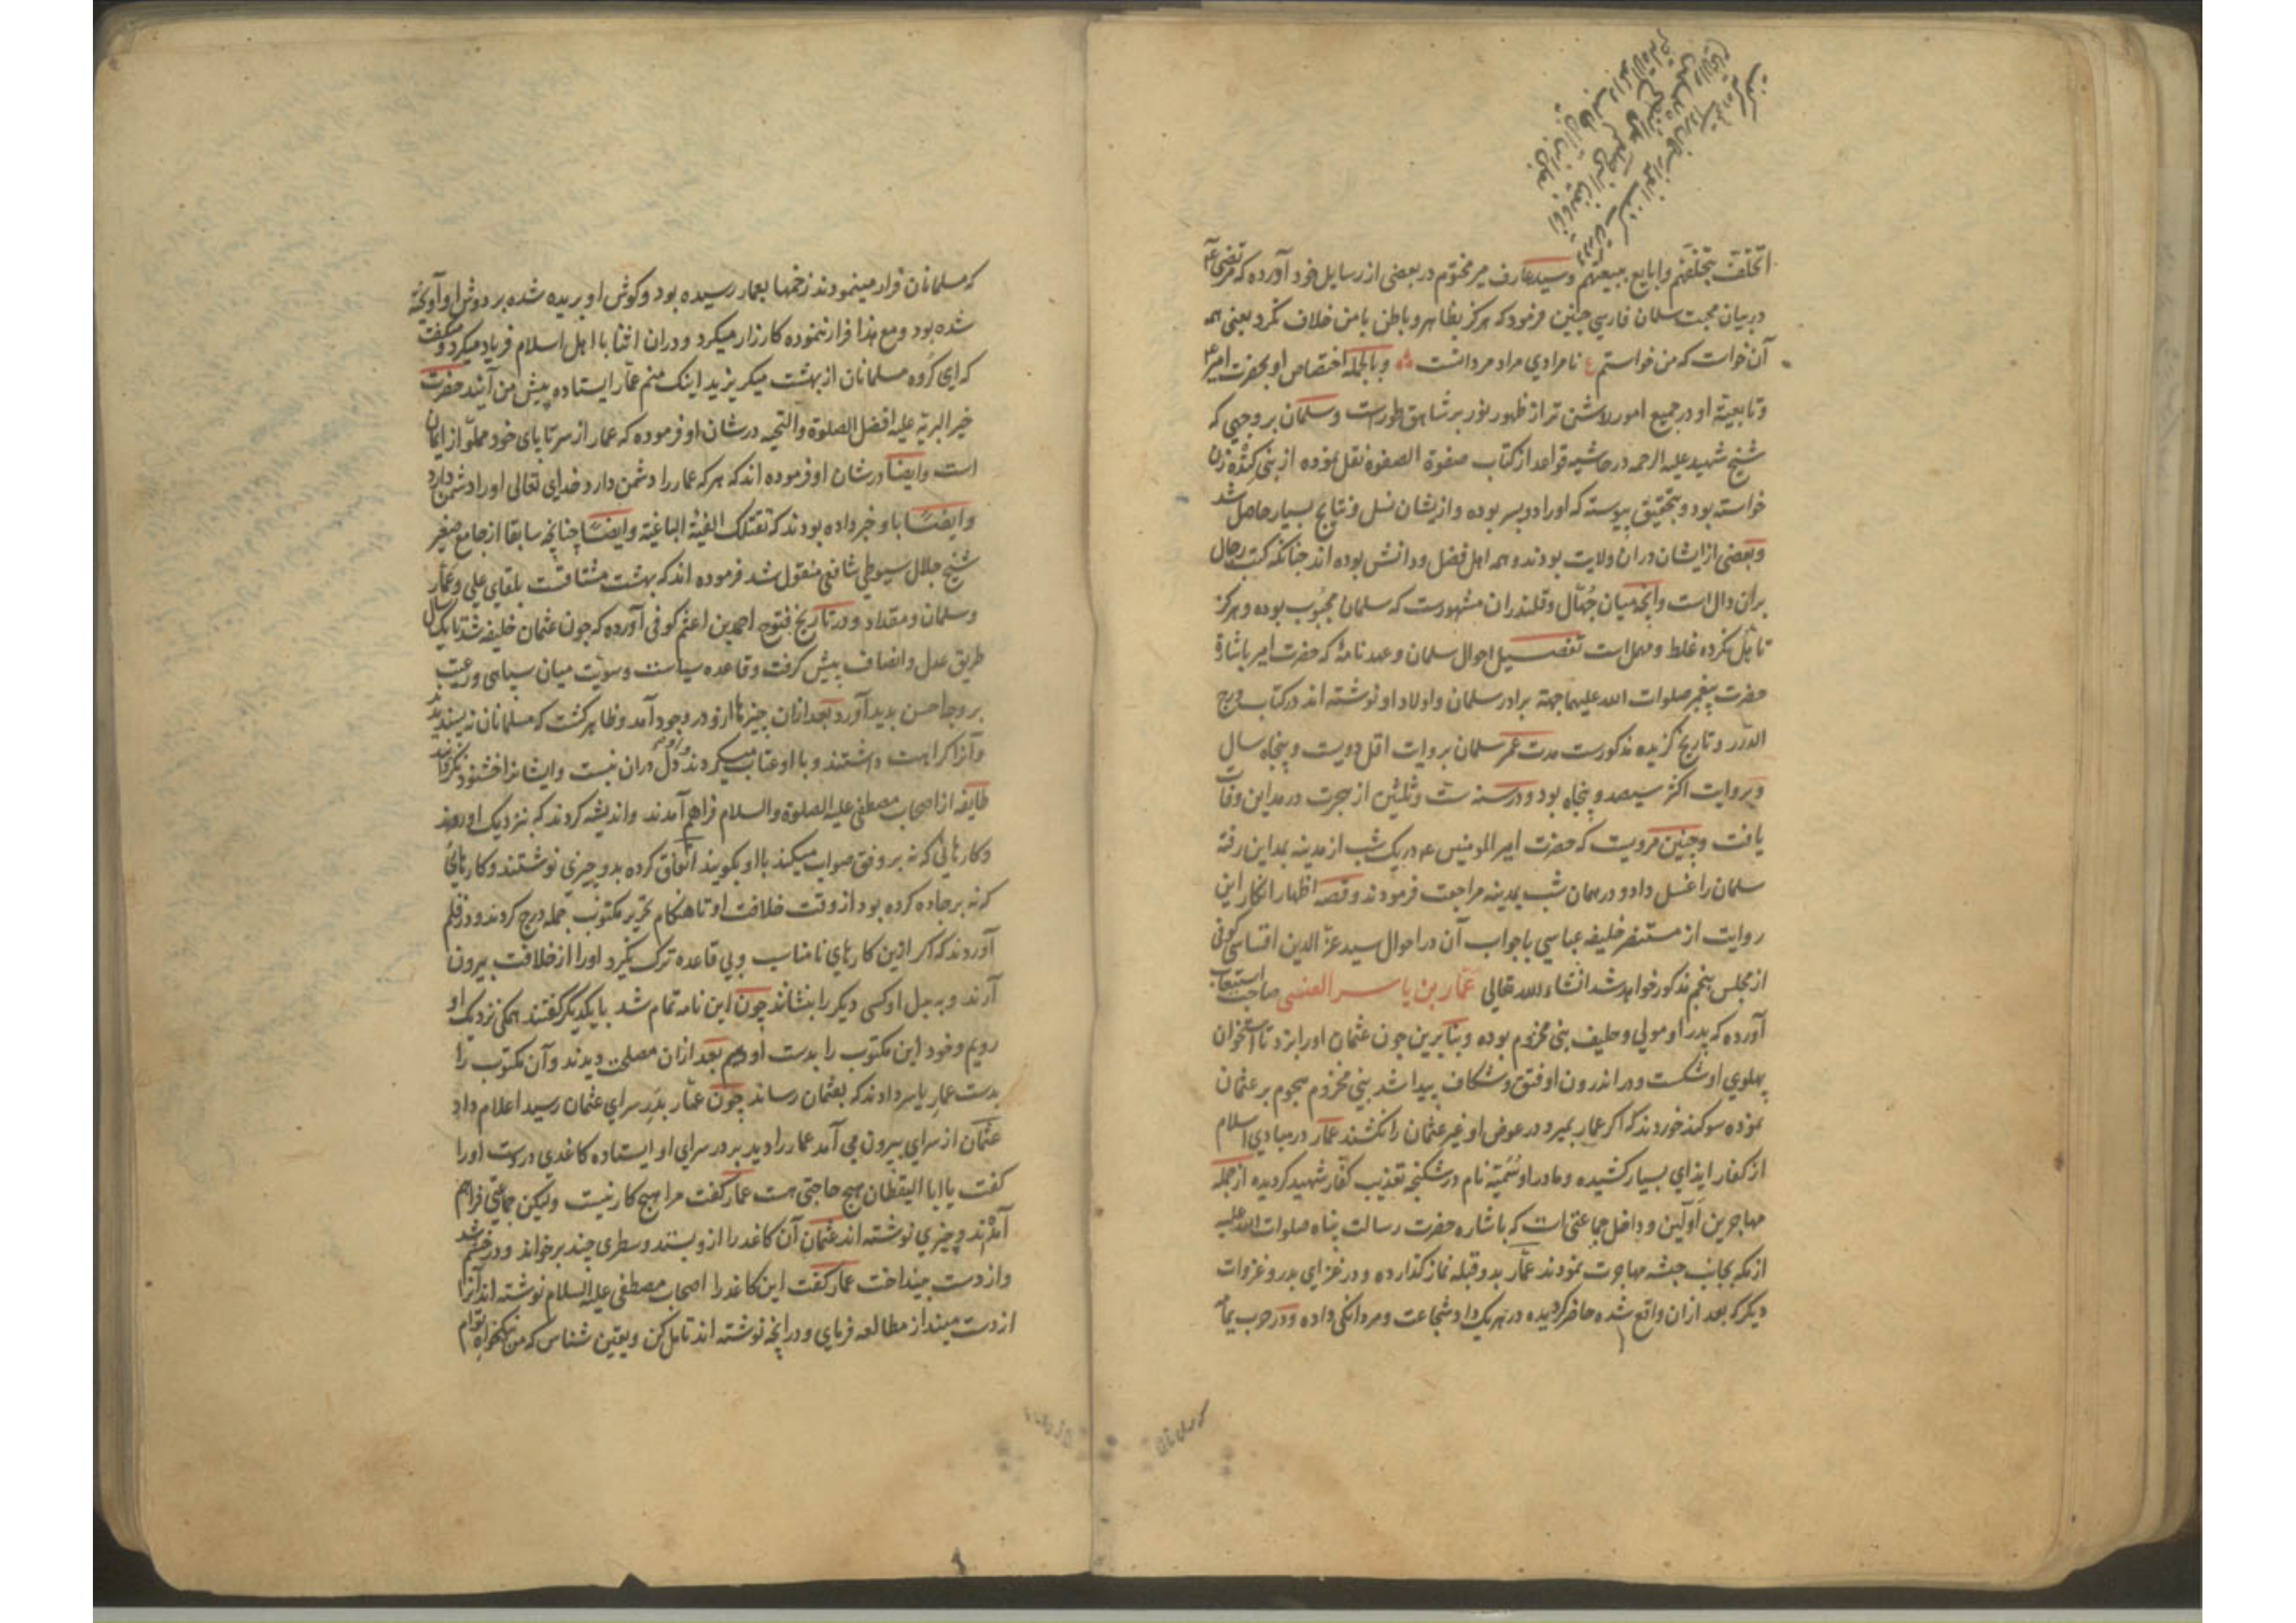 اتخلف بتخلفهم وابایع ببیعتهم وسید عارف میر مختوم در بعضی از رسایل خود آورده که مرتضی
در بیان محبت سلمان فارسی چنین فرمود که هرکز بظاهر و باطن با من خلاف نکرد یعنی همه
آن خواست که من خواستم ع نامرادی مراد مردانست وبالجمله اختصاص او بحضرت امیر
وتابعیة او در جمیع امور روشن تر از ظهور نور بر شاهق طورست وسلمان بر وجهی که
شیخ شهید علیه الرحمه در حاشیه قواعد از کتاب صفوة الصفوه نقل نموده از بنی کنده زن
خواسته بود و بتحقیق پیوسته که اورا دو پسر بوده وازیشان نسل و نتایج بسیار حاصل شد
وبعضی از ایشان دران ولایت بودند وهمه اهل فضل ودانش بوده اند چنانکه کتب رجال
بران دال است وآنچه میان جهّال وقلندران مشهورست که سلمان مجبوب بوده وهرکز
تاهل نکرده غلط ومهمل است تفصیل احوال سلمان وعهدنامه که حضرت امیر باشارة
حضرت پیغمبر صلوات الله علیهما جهة برادر سلمان واولاد او نوشته اند در کتاب درج
الدرر وتاریخ کزیده مذکورست مدت عمر سلمان بروایت اقل دویست وپنجاه سال
وبروایت اکثر سیصد وپنجاه بود ودر سنه ست وثلثین از هجرت در مداین وفات
یافت وچنین مرویست که حضرت امیر المومنین ع در یک شب از مدینه بمداین رفته
سلمان را غسل داد ودر همان شب بمدینه مراجعت فرمودند وقصه اظهار انکار این
روایت از مستنصر خلیفه عباسی با جواب آن در احوال سید عز الدین اقساسی کوفی
از مجلس پنجم مذکور خواهد شد انشاء الله تعالی عمّار بن یاسر العنسی صاحب استیعاب
آورده که پدر او مولی وحلیف بنی مخزوم بوده وبنابرین چون عثمان اورا بزد تا استخوان
پهلوی او شکست ودر اندرون او فتق وشکاف پیدا شد بنی مخزوم هجوم بر عثمان
نموده سوکند خوردند که اکر عمار بمیرد در عوض او غیر عثمان را نکشند عمار در مبادی اسلام
از کفار ایذای بسیار کشیده ومادر او سُمَیّه نام در شکنجه تعذیب کفّار شهید کردیده از جمله
مهاجرین اولین وداخل جماعتی است که باشاره حضرت رسالت پناه صلوات الله علیه
از مکه بجانب حبشه مهاجرت نمودند عمّار بدو قبله نماز کذارده ودر غزای بدر وغزوات
دیکر که بعد ازان واقع شده حاضر کردیده در هریک داد شجاعت ومردانکی داده ودر حرب یمامه
که مسلمانان فرار مینمودند زخمها بعمار رسیده بود وکوش او بریده شده بر دوش او آویخته
شده بود ومع هذا فرار ننموده کارزار میکرد ودران اثنا با اهل اسلام فریاد میکرد ومیکفت
که ای کروه مسلمانان از بهشت میکریزید اینک منم عمّار ایستاده پیش من آیند حضرت
خیر البریه علیه افضل الصلوة والتحیه در شان او فرموده که عمار از سر تا پای خود مملو از ایمان
است وایضا در شان او فرموده اند که هر که عمار را دشمن دارد خدای تعالی اورا دشمن دارد
وایضًا باو خبر داده بودند که تقتلک الفیئة الباغیة وایضًا چنانچه سابقا از جامع صغیر
شیخ جلال سیوطی شافعی منقول شد فرموده اند که بهشت مشتاقست بلقای علی وعمّار
وسلمان ومقداد ودر تاریخ فتوح احمد بن اعثم کوفی آورده که چون عثمان خلیفه شد تا یک سال
طریق عدل وانصاف پیش کرفت وقاعده سیاست وسویّت میان سپاهی ورعیت
بر وجه احسن پدید آورد بعد ازان چیزها ازو در وجود آمد وظاهر کشت که مسلمانان نپسندیدند
وآنرا کراهت داشتند وبا او عتاب میکردند دل دران نبست وایشانرا خشنود نکردانید
طایفه از اصحاب مصطفی علیه الصلوة والسلام فراهم آمدند واندیشه کردند که نزدیک او روند
وکارهائی که نه بر وفق صواب میکند با او بکویند اتفاق کرده بدو چیزی نوشتند وکارهای
که نه بر جاده کرده بود از وقت خلافت او تا هنکام تحریر مکتوب جمله درج کردند ودر قلم
آوردند که اکر ازین کارهای نامناسب وبی قاعده ترک نکیرد اورا از خلافت بیرون
آرند وببدل او کسی دیکر را بنشانند چون این نامه تمام شد با یکدیکر کفتند همکی نزدیک او
رویم وخود این مکتوب را بدست او دهیم بعد ازان مصلحت دیدند وآن مکتوب را
بدست عمار یاسر دادند که بعثمان رساند چون عمّار بدر سرای عثمان رسید اعلام داد
عثمان از سرای بیرون می آمد عمار را دید بر در سرای او ایستاده کاغدی در دست اورا
کفت یا ابا الیقظان هیچ حاجتی هست عمار کفت مرا هیچ کار نیست ولیکن جماعتی فراهم
آمدند وچیزی نوشته اند عثمان آن کاغد را ازو بستد وسطری چند برخواند ودر خشم شد
واز دست بینداخت عمار کفت این کاغد را اصحاب مصطفی علیه السلام نوشته اند آنرا
از دست مینداز مطالعه فرمای ودر آنچه نوشته اند تامل کن ویقین شناس که من نیکخواه توام